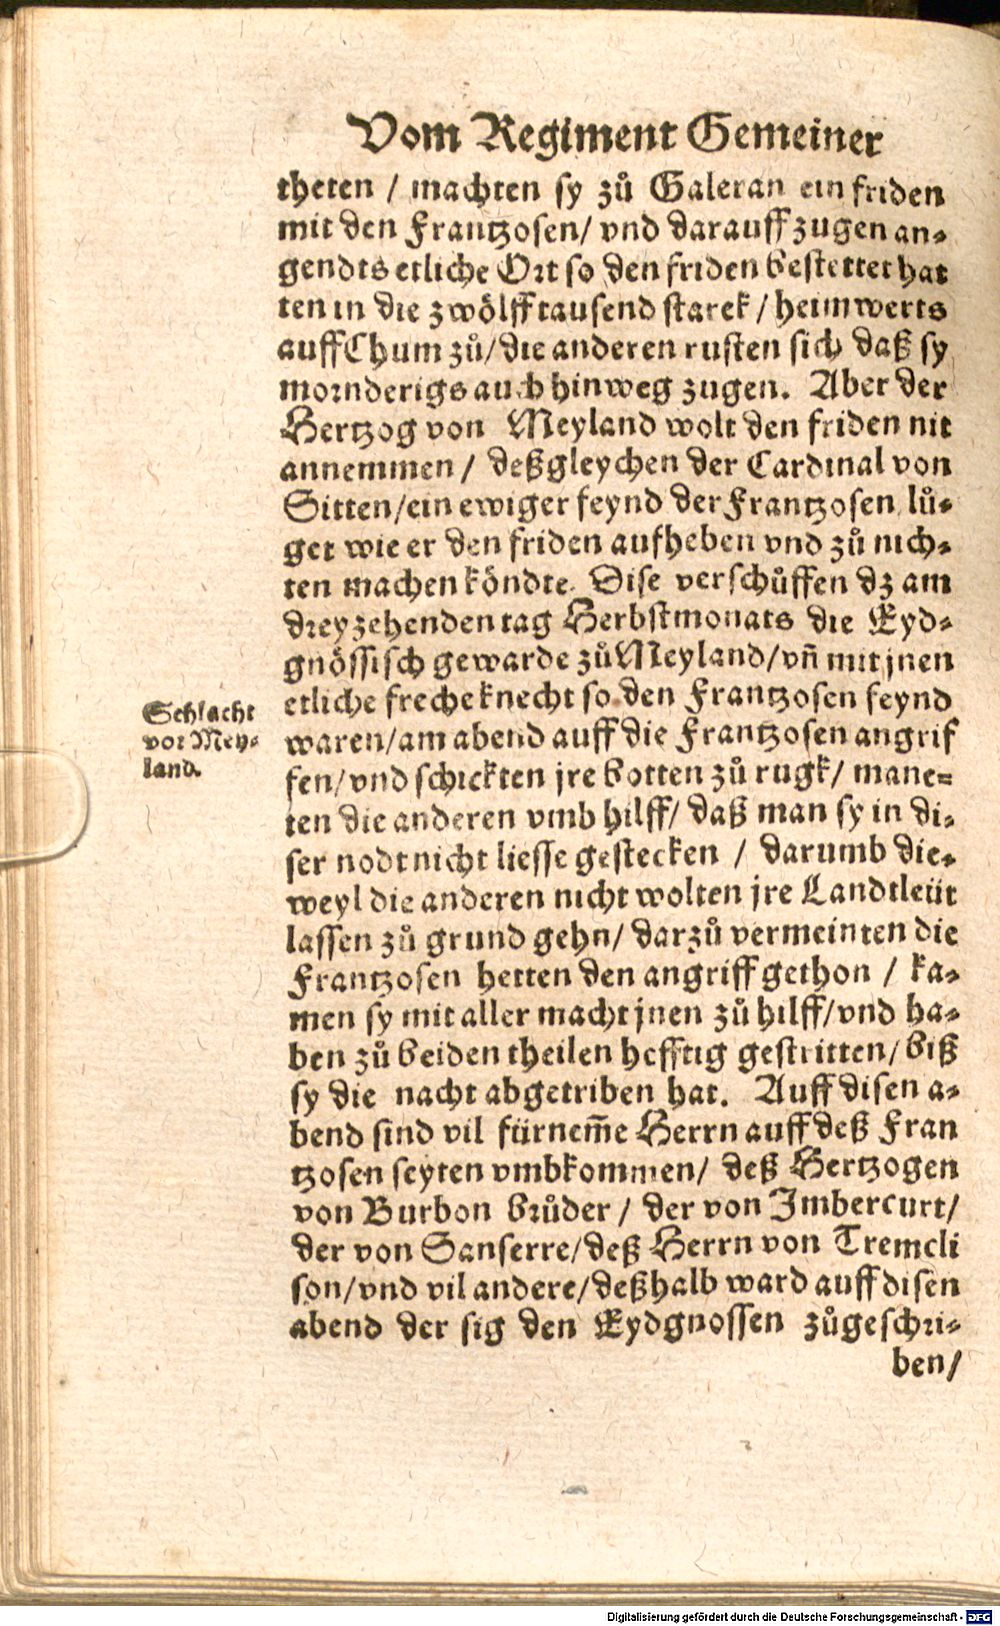 Vom Regiment Gemeiner
theten / machten sy zů Galeran ein friden
mit den Frantzosen/ vnd darauff zugen an-
gendts etliche Ort so den friden bestettet hat
ten in die zwölff tausend starck / heimwerts
auff Chum zů/ die anderen rusten sich daß sy
mornderigs auch hinweg zugen. Aber der
Hertzog von Meyland wolt den friden nit
annemmen / deßgleychen der Cardinal von
Sitten/ ein ewiger feynd der Frantzosen lů-
get wie er den friden aufheben vnd zů nich-
ten machen köndte. Dise verschůffen dz am
dreyzehenden tag Herbstmonats die Eyd-
gnössisch gewarde zů Meyland/ vñ mit jnen
etliche freche knecht so den Frantzosen feynd
Schlacht
vor Mey-
land.
waren/ am abend auff die Frantzosen angrif
fen/ vnd schickten jre botten zů rugk/ mane-
ten die anderen vmb hilff/ daß man sy in di-
ser nodt nicht liesse gestecken / darumb die-
weyl die anderen nicht wolten jre Landtleüt
lassen zů grund gehn/ darzů vermeinten die
Frantzosen hetten den angriff gethon / ka-
men sy mit aller macht jnen zů hilff/ vnd ha-
ben zů beiden theilen hefftig gestritten/ biß
sy die nacht abgetriben hat. Auff disen a-
bend sind vil fürnem̃e Herrn auff deß Fran
tzosen seyten vmbkommen/ deß Hertzogen
von Burbon brůder / der von Imbercurt/
der von Sanserre/ deß Herrn von Tremeli
son/ vnd vil andere/ deßhalb ward auff disen
abend der sig den Eydgnossen zůgeschri-
ben/
Digitalisierung gefördert durch die Deutsche Forschungsgemeinschaft - DFG